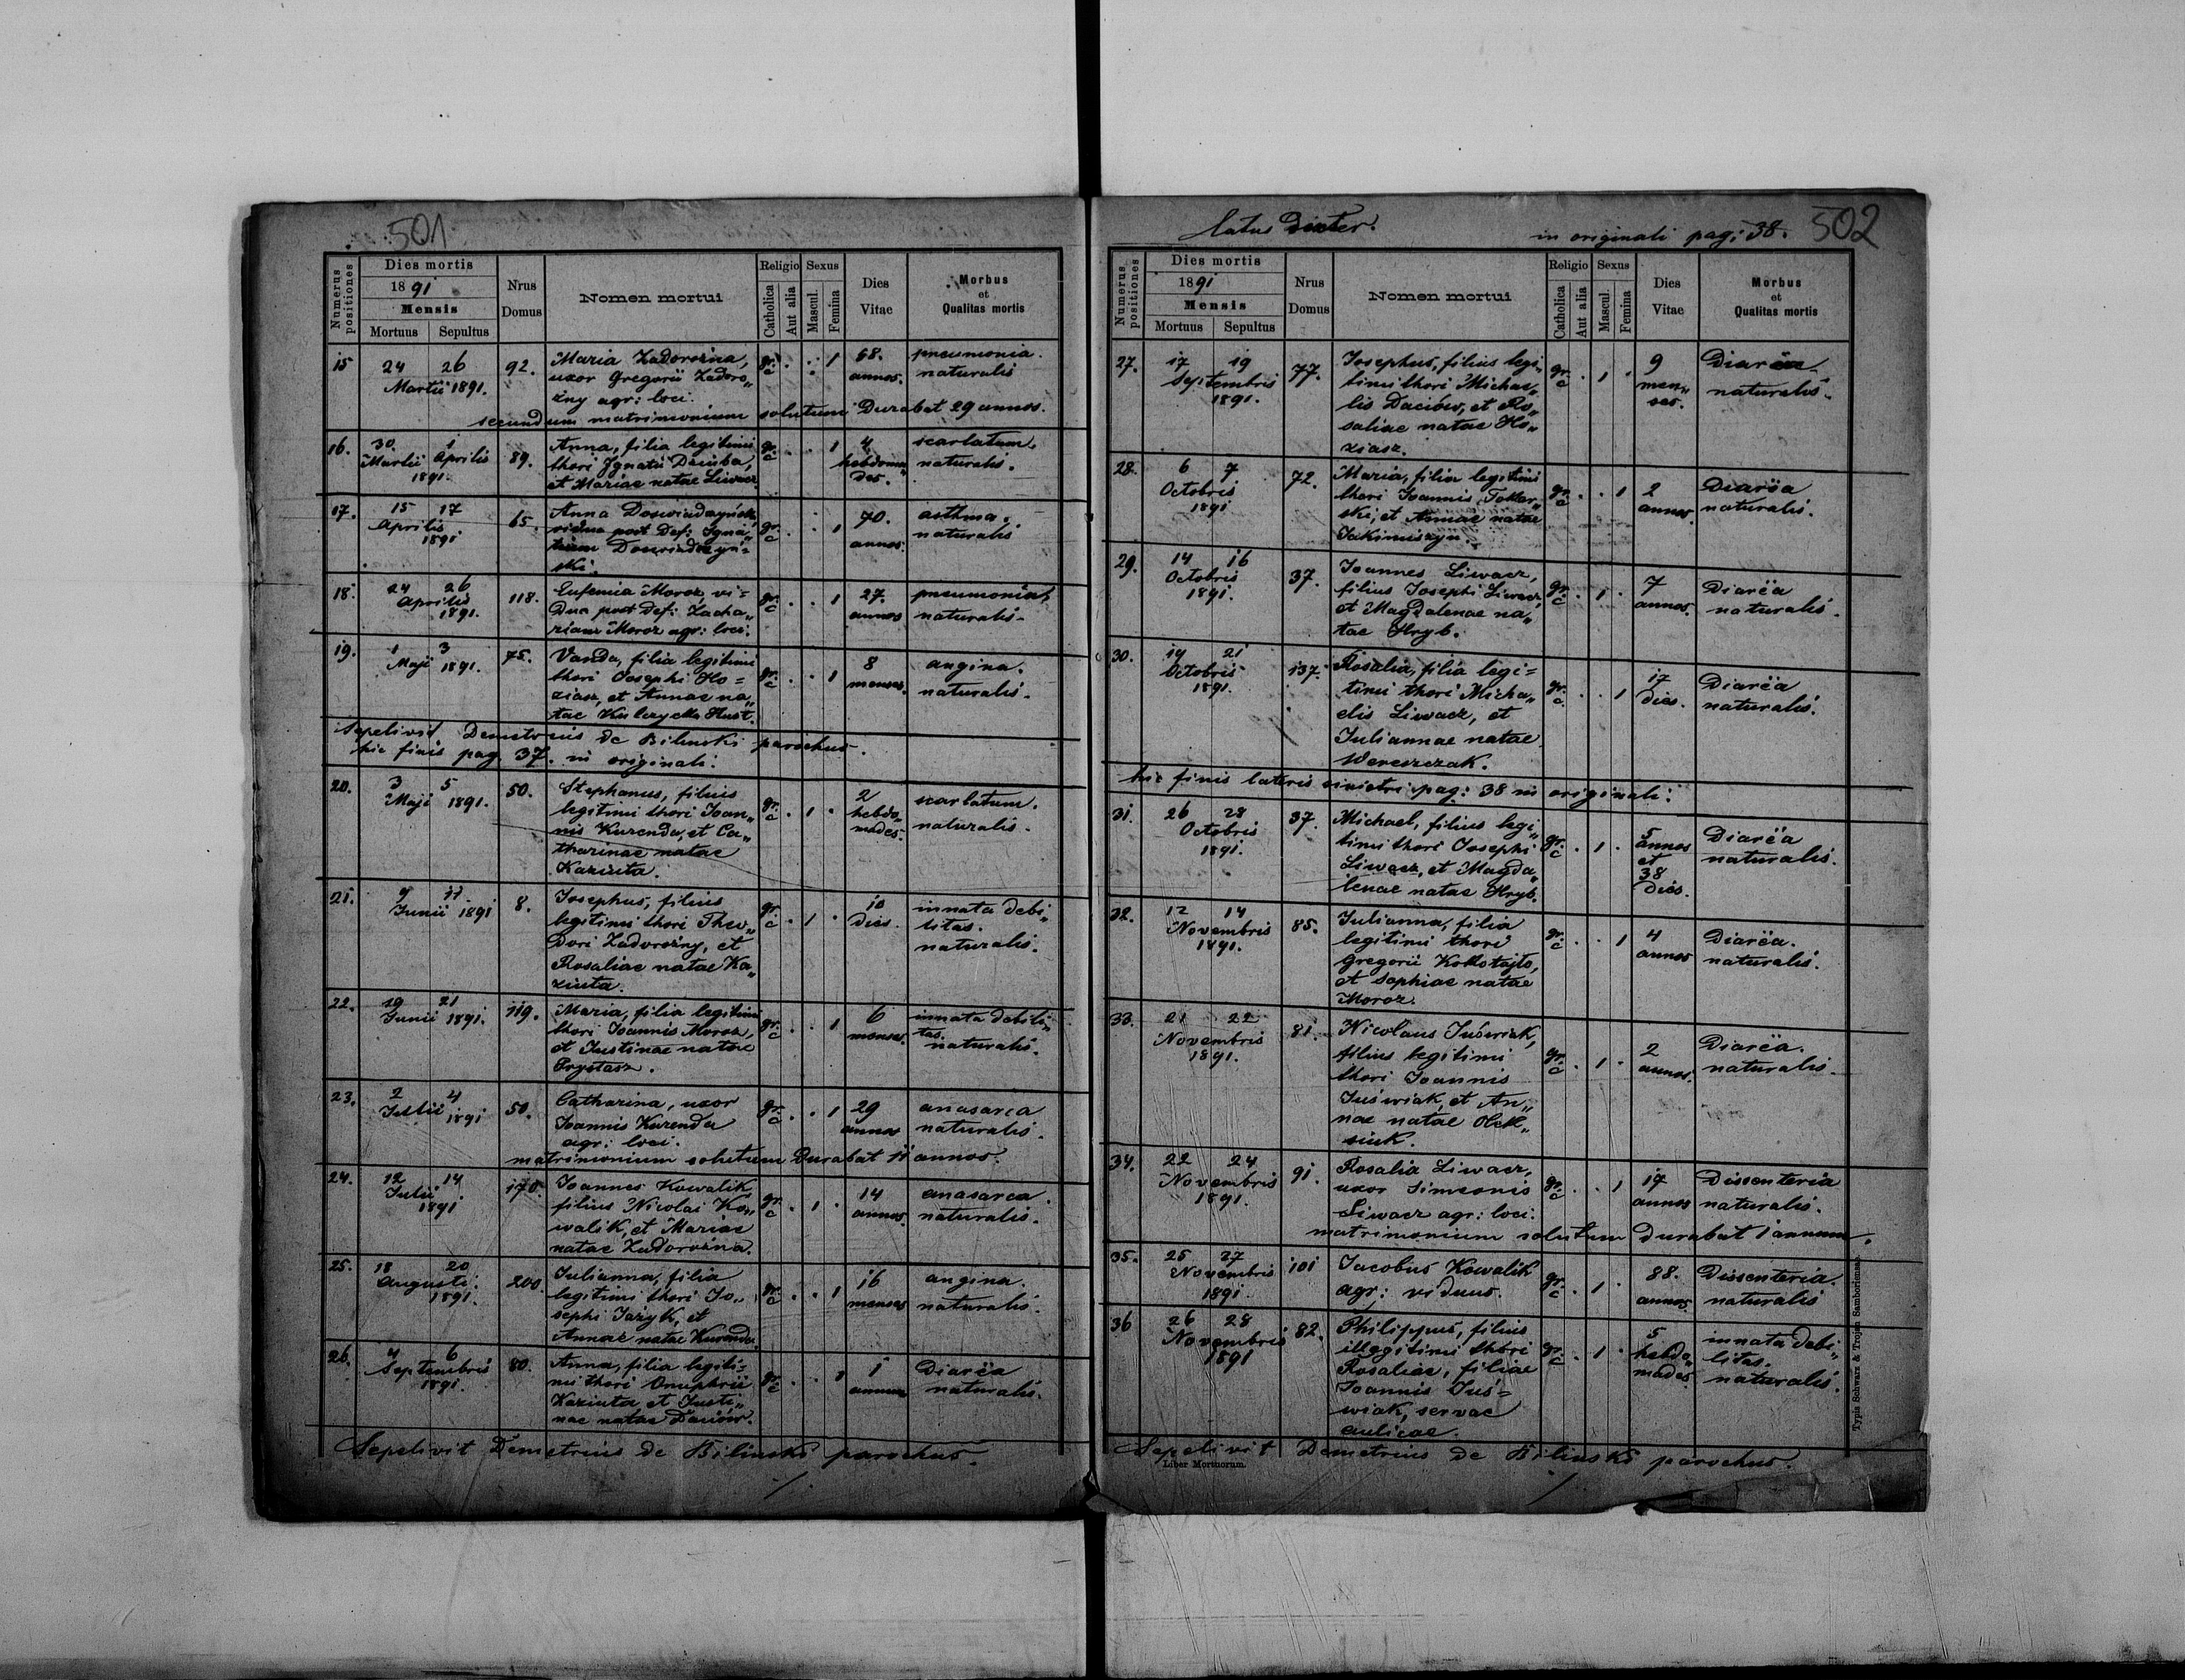 501
Numerus positiones
Dies mortis
1891
Mensis
Mortuus Sepultus
Nrus Domus
Nomen mortui
Religio
Catholica
Aut alia
Sexus
Mascul.
Femina
Dies Vitae
Morbus et Qualitas mortis
15 24 26 92. Maria Zadorożna, gr. c 1 68. pneumonia.
Martii 1891. uxor Gregorii Zadoro„ annos. naturalis
żny agr: loci.
secundum matrimonium solutum Durabat 29 annos.
16. 30. 1 89. Anna, filia legitimi gr. c 1 4 scarlatum.
Martii Aprilis thori Ignatii Dziuba, hebdoma„ naturalis.
1891. et Mariae natae Liwacz. des.
17. 15 17 65. Anna gr. c 1 70. asthma.
Aprilis vidua post Def: Igna„ annos. naturalis
1891
ski.
18. 24 26 118. Eufemia Moroz, vi= gr. c 1 27. pneumonia
Aprilis Dua post Def: Zacha„ annos naturalis.
1891. riam Moroz agr: loci.
19. 1 3 75. Vanda, filia legitimi gr. c 1 8 angina.
Maji 1891. thori Josephi Ko= menses. naturalis.
ziasz, et Annae na„
tae Kulczycka Hust.
Sepelivit Demetrius de Bilinski parochus.
hic finis pag. 37. in originali.
20. 3 5 50. Stephanus, filius gr. c 1 2 scarlatum.
Maji 1891. legitimi thori Joan„ hebdo„ naturalis.
nis Kurenda, et Ca„ mades.
tharinae natae
Kaziuta.
21. 9 11 8. Josephus, filius gr. c 1 10 innata debi„
Junii 1891 legitimi thori Theo„ dies. litas.
Dori Zadorożny, et naturalis.
Rosaliae natae Ka„
ziuta.
22. 19 21 119. Maria, filia legitimi gr. c 1 6 innata debili„
Junii 1891. thori Joannis Moroz, menses. tas.
et Justinae natae naturalis.
Prystasz.
23. 2 4 50. Catharina, uxor gr. c 1 29 anasarca
Julii 1891 Joannis Kurenda annos naturalis.
agr: loci.
matrimonium solutum Durabat 11 annos.
24. 12 14 170. Joannes Kowalik gr. c 1 14 anasarca.
Julii filius Nicolai Ko„ annos. naturalis.
1891 walik, et Mariae
natae Zadorożna.
25. 18 20 200. Julianna, filia gr. c 1 16 angina.
Augusti legitimi thori Jo„ menses naturalis.
1891. sephi Jażyk, et
Annae natae Kurenda.
26. 4 6 80. Anna, filia legiti= gr. c 1 1 Diarëa
Septembris mi thori Onuphrii annum naturalis.
1891. Kaziuta et Justi„
nae natae Daciów.
Sepelivit Demetrius de Bilinski parochus.
latus Dexter.
in originali pag: 38.
502
Numerus positiones
Dies mortis
1891
Mensis
Mortuus Sepultus
Nrus Domus
Nomen mortui
Religio
Catholica
Aut alia
Sexus
Mascul.
Femina
Dies Vitae
Morbus et Qualitas mortis
27. 17 19 77. Josephus, filius legi„ gr. c 1 9 Diarëa
Septembris timi thori Michae„ men„ naturalis.
1891. lis Daciów, et Ro„ ses.
saliae natae Ko„
ziasz.
28. 6 7 72. Maria, filia legitimi gr. c 1 2 Diarëa
Octobris thori Joannis Tokar„ annos. naturalis.
1891 ski, et Annae natae
Jakimiszyn.
29. 14 16 37. Joannes Liwacz, gr. c 1 7 Diarëa
Octobris filius Josephi Liwacz annos. naturalis.
1891. et Magdalenae na„
tae Hryb.
30. 19 21 137. Rosalia, filia legi= gr. c. 1 17 Diarëa
Octobris timi thori Micha„ dies. naturalis.
1891. elis Liwacz, et
Juliannae natae
Wereszczak.
hic finis lateris sinistri pag: 38 in originali.
31. 26 28 37. Michael, filius legi„ gr. c 1 5 Diarëa
Octobris timi thori Josephi annos naturalis.
1891. Liwacz, et Magda„ et
lenae natae Hryb. 38
Dies.
32. 12 14 85. Julianna, filia gr. c 1 4 Diarëa.
Novembris legitimi thori annos naturalis.
1891. Gregorii Kołłotajło,
et Sophiae natae
Moroz.
33. 21 22 81. Nicolaus Juświak, gr. c 1 2 Diarëa.
Novembris filius legitimi annos. naturalis.
1891. thori Joannis
Juświak, et An„
nae natae Olek„
siuk.
34. 22 24 91. Rosalia Liwacz, gr. c 1 17 Dissenteria
Novembris uxor Simeonis annos naturalis.
1891. Liwacz agr: loci.
matrimonium solutum Durabat 1 annum.
35. 25 27 101 Jacobus Kowalik gr. c 1 88. Dissenteria.
Novembris agr: viduus. annos. naturalis
1891.
36 26 28 82. Philippus, filius gr. c 1 5 innata debi„
Novembris illegitimi thori hebdo„ litas.
1891 Rosaliae, filiae mades. naturalis.
Joannis Juś=
wiak, servae
aulicae.
Sepelivit Demetrius de Bilinski parochus.
Liber Mortuorum.
Typis Schwarz & Trojan Samboriensae.